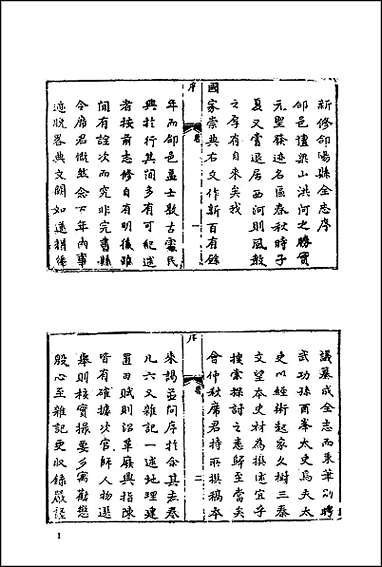 新修郃陽縣全志序
郃邑擅梁山洪河之勝實
元聖發迹名區春秋時子
夏又嘗退居西河則風教
之厚有自來矣我
國家崇典右文作新百有餘
序
卷
一
年而郃邑盡士敦古處民
興於行其間多有可紀述
者按前志修自有明後雖
間有詮次而究非完書縣
令席君慨然念百年內事
迹恍畧典文闕如遂捐俸
議纂成全志而秉筆則聘
武功孫酉峯太史焉夫太
史以經術起家久樹三秦
文望本史材為撰述宜乎
搜索探討之悉歸至當矣
會仲秋席君持所撰稿本
序
卷
二
來謁並問序於余其志卷
凡六又雜記一述地理建
置田賦則詔革厥興指陳
皆有確據次官師人物選
舉則核實操要多寓勸懲
殷心至雜記更收錄嚴謹
1